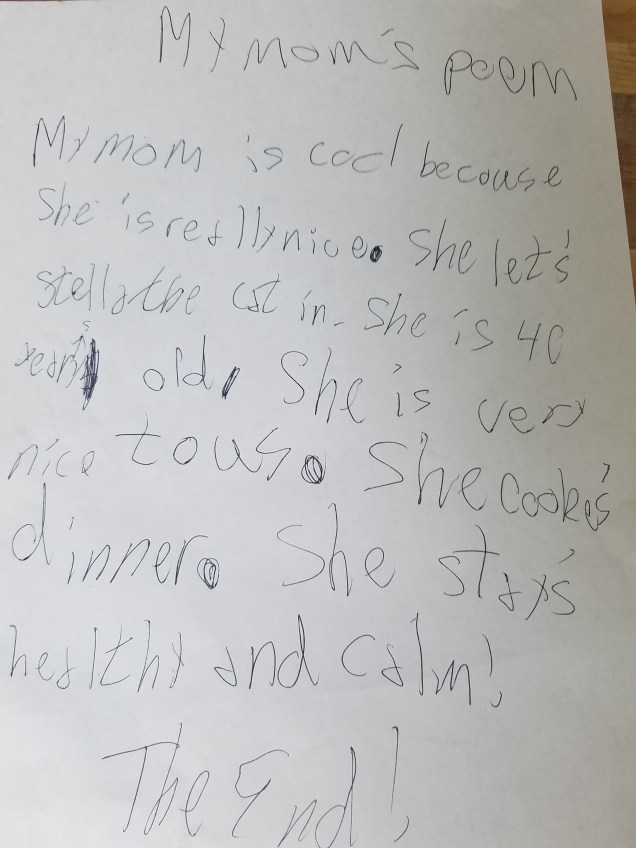 My mom's poem
My mom is cool becouse
She is really nice. She let's
Stella the cat in. She is 40
years old, She is very
nice to us. She cooke's
dinner. She stay's
healthy and calm!
The End!